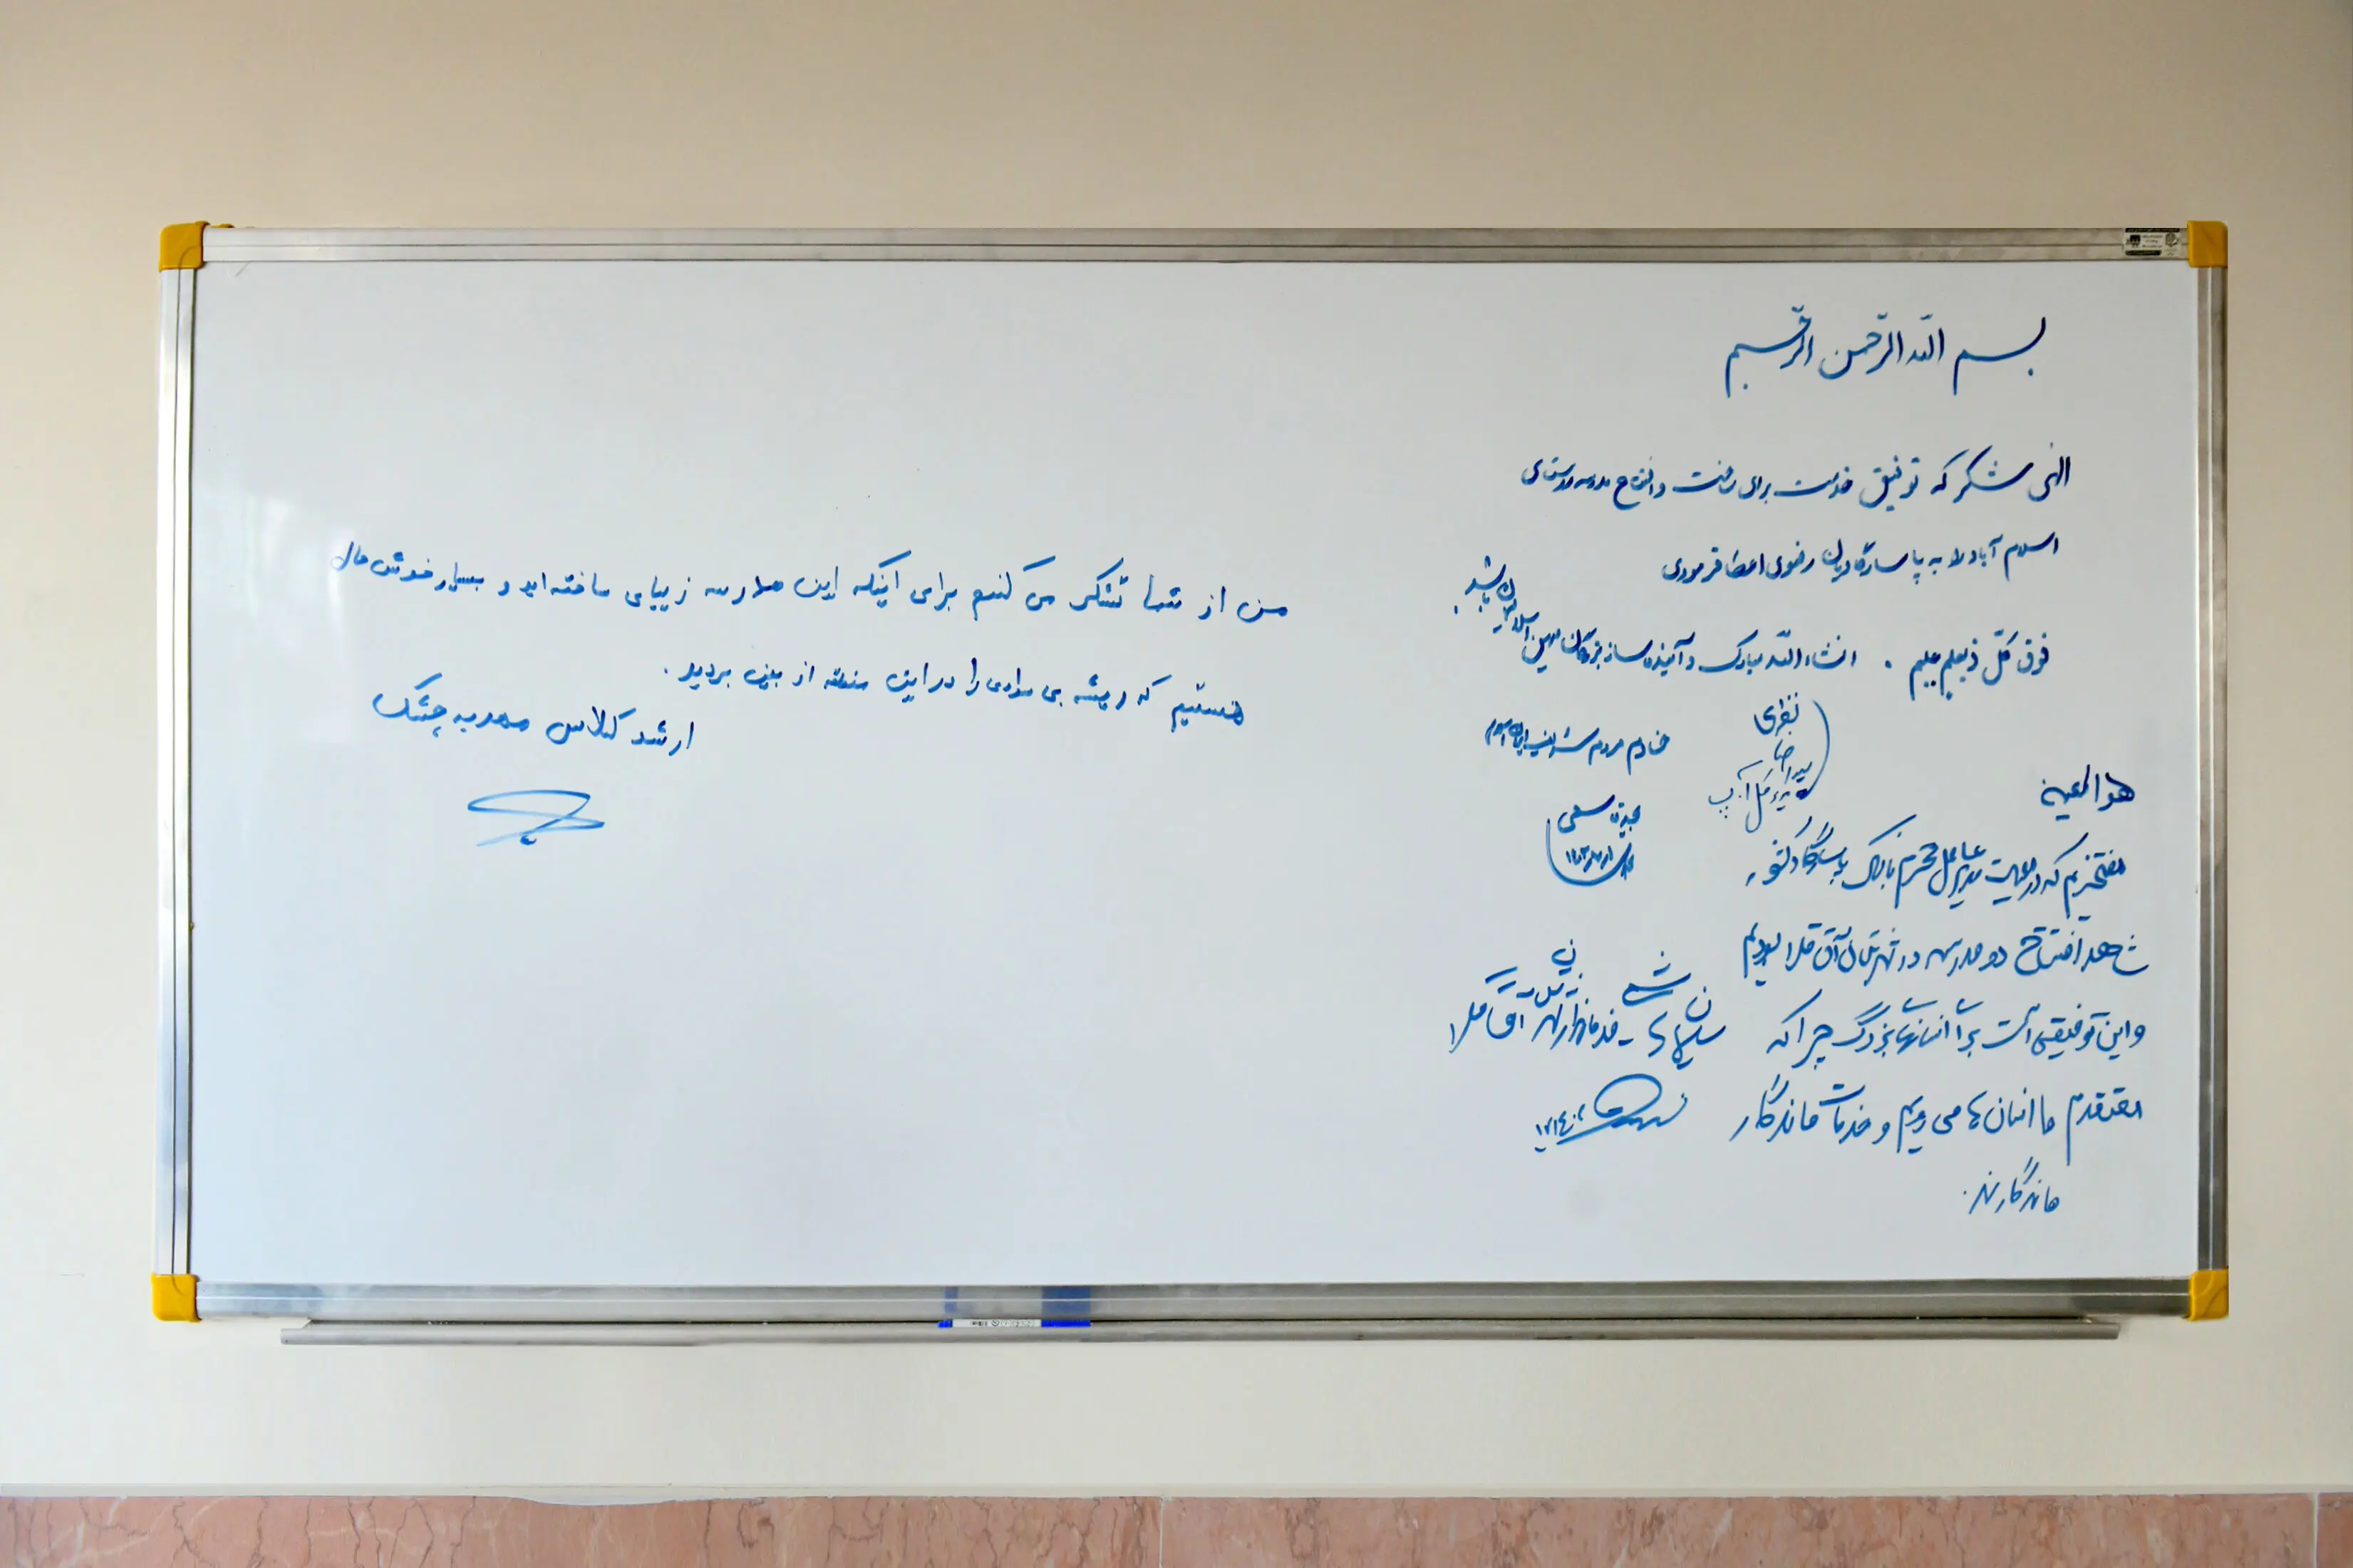 بسم الله الرحمن الرحیم
الهی شکر که توفیق خدمت برای ساخت و افتتاح مدرسه روستای
اسلام آباد را به پاسارگادیان رضوی اعطا فرمودی
فوق کل ذیعلم علیم . انشاءالله مبارک و آینده ساز بزرگان ایران اسلامی باشد.
خادم مردم شریف ایران اسلامی
هو المعین
مفتخریم که در معیت مدیر عامل محترم بانک پاسارگاد کشور
شاهد افتتاح دو مدرسه در شهرستان آق قلا بودیم
و این توفیقی است برا انسانهای بزرگ چرا که
معتقدم ما انسان ها می رویم و خدمات ماندگار
ماندگارند.
فرماندار شهرستان آق قلا
من از شما تشکر می کنم برای اینکه این مدرسه زیبای ساخته اید و بسیار خوش حال
هستیم که ریشه بی سوادی را در این منطقه از بین بردید.
ارشد کلاس